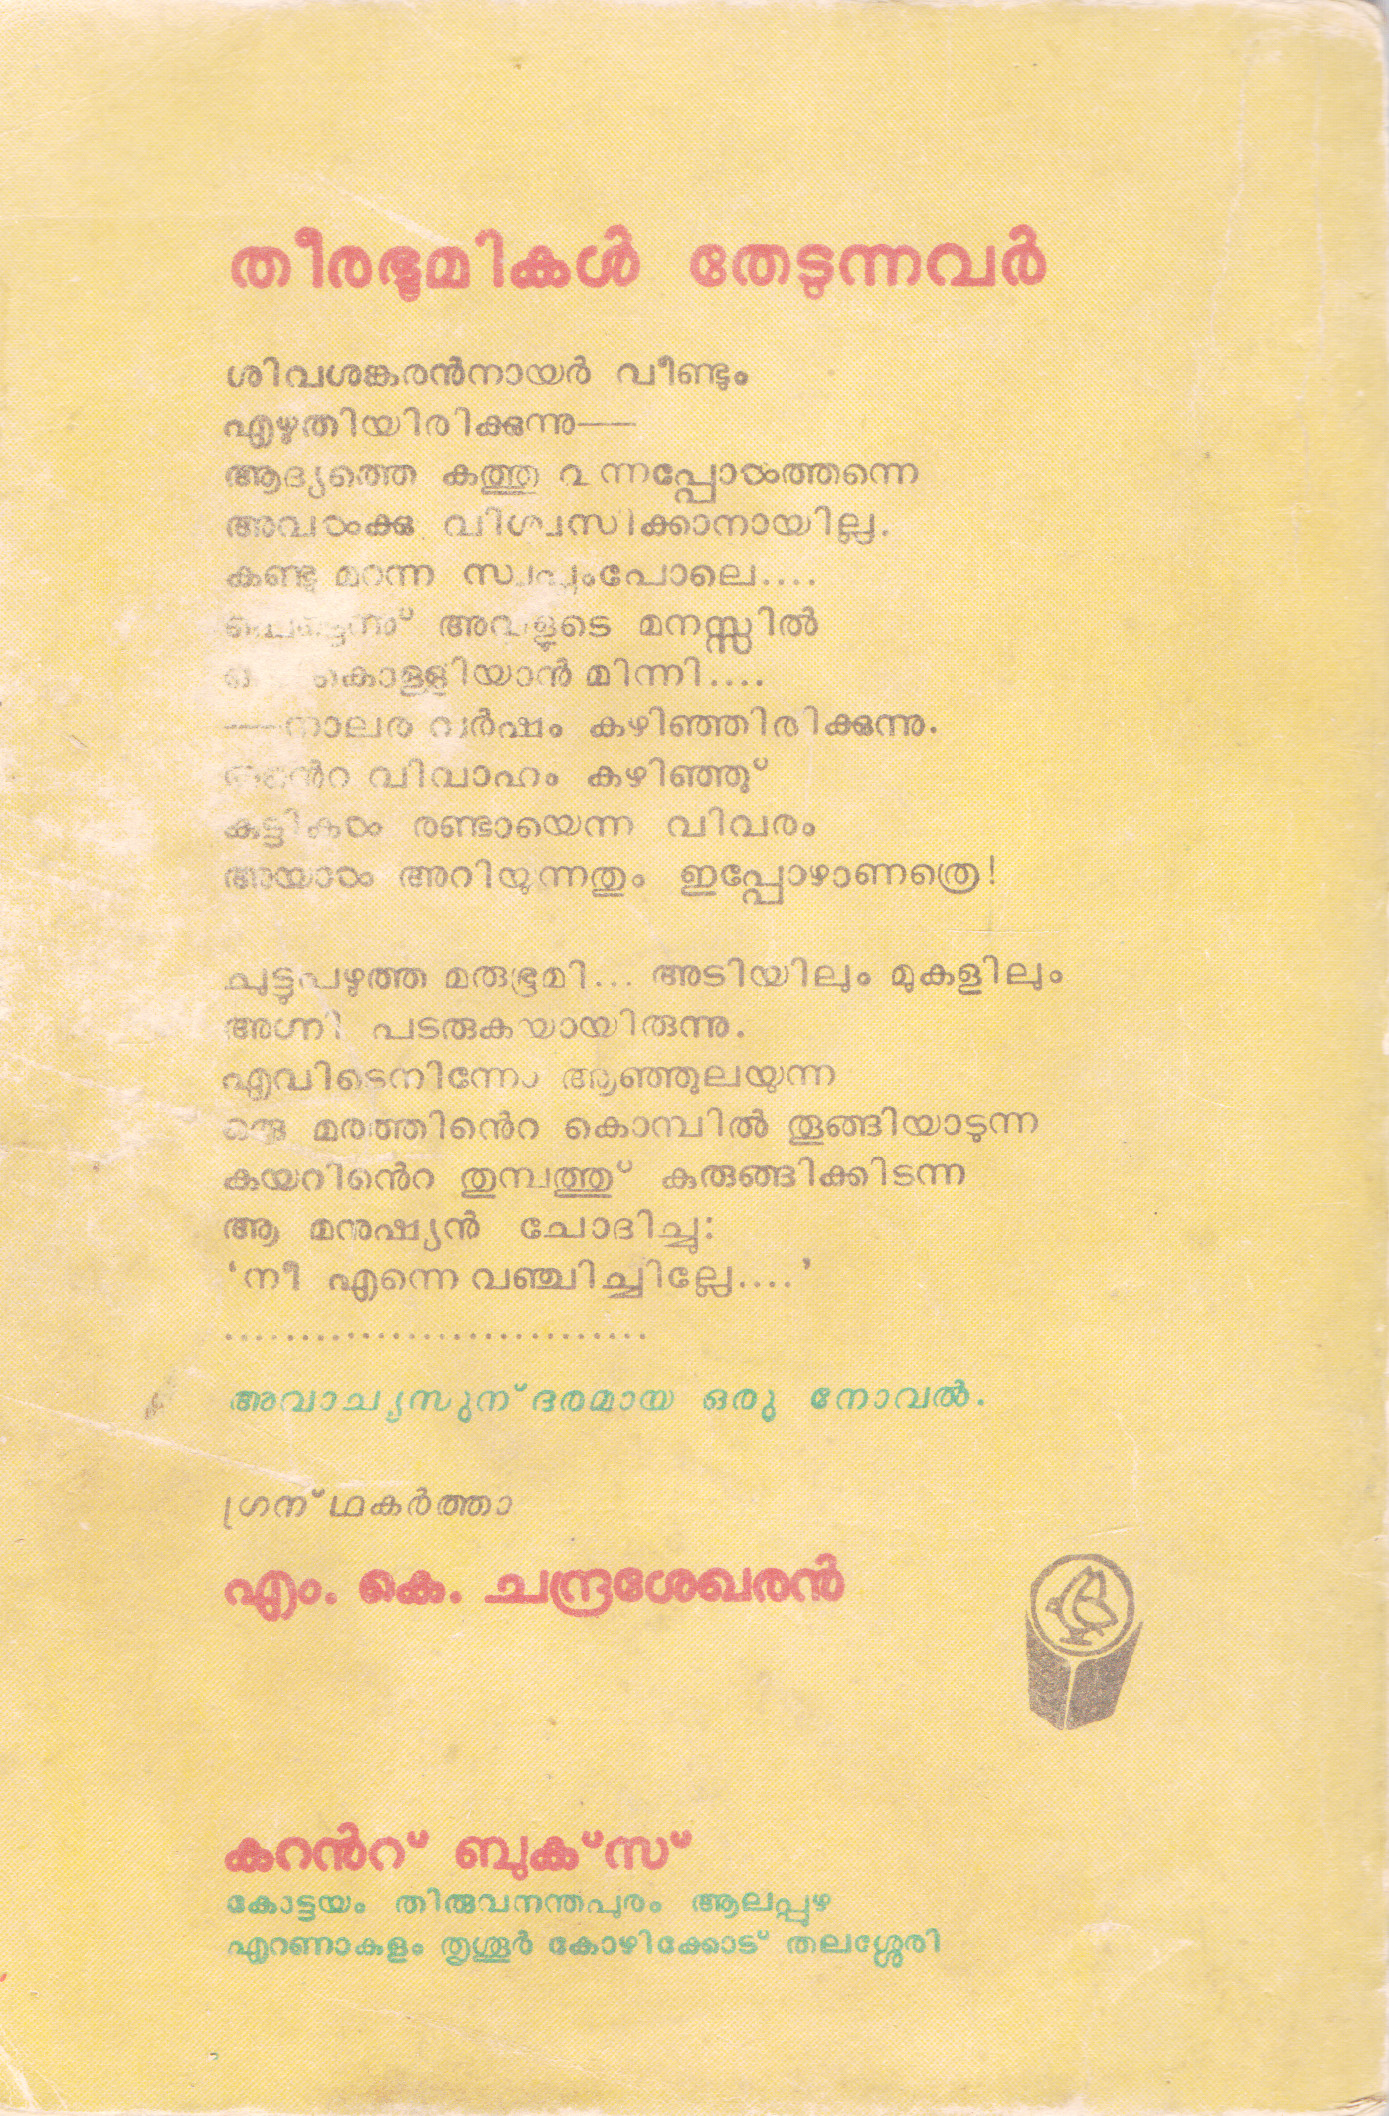 തീരഭൂമികൾ തേടുന്നവർ
ശിവശങ്കരൻനായർ വീണ്ടും
എഴുതിയിരിക്കുന്നു—
ആദ്യത്തെ കത്തു വന്നപ്പോൾത്തന്നെ
അവൾക്കു വിശ്വസിക്കാനായില്ല.
കണ്ടു മറന്ന സ്വപ്നംപോലെ....
പെട്ടെന്നു് അവളുടെ മനസ്സിൽ
കൊള്ളിയാൻ മിന്നി....
—നാലര വർഷം കഴിഞ്ഞിരിക്കുന്നു.
തന്റെ വിവാഹം കഴിഞ്ഞു്
കുട്ടികൾ രണ്ടായെന്ന വിവരം
അയാൾ അറിയുന്നതും ഇപ്പോഴാണത്രെ!
ചുട്ടുപഴുത്ത മരുഭൂമി... അടിയിലും മുകളിലും
അഗ്നി പടരുകയായിരുന്നു.
എവിടെനിന്നോ ആഞ്ഞുലയുന്ന
ഒരു മരത്തിന്റെ കൊമ്പിൽ തൂങ്ങിയാടുന്ന
കയറിന്റെ തുമ്പത്തു് കുരുങ്ങിക്കിടന്ന
ആ മനുഷ്യൻ ചോദിച്ചു:
‘നീ എന്നെ വഞ്ചിച്ചില്ലേ....’
.............................
അവാച്യസുന്ദരമായ ഒരു നോവൽ.
ഗ്രന്ഥകർത്താ
എം. കെ. ചന്ദ്രശേഖരൻ
കറൻറ് ബുക്സ്
കോട്ടയം തിരുവനന്തപുരം ആലപ്പുഴ
എറണാകുളം തൃശൂർ കോഴിക്കോട് തലശ്ശേരി